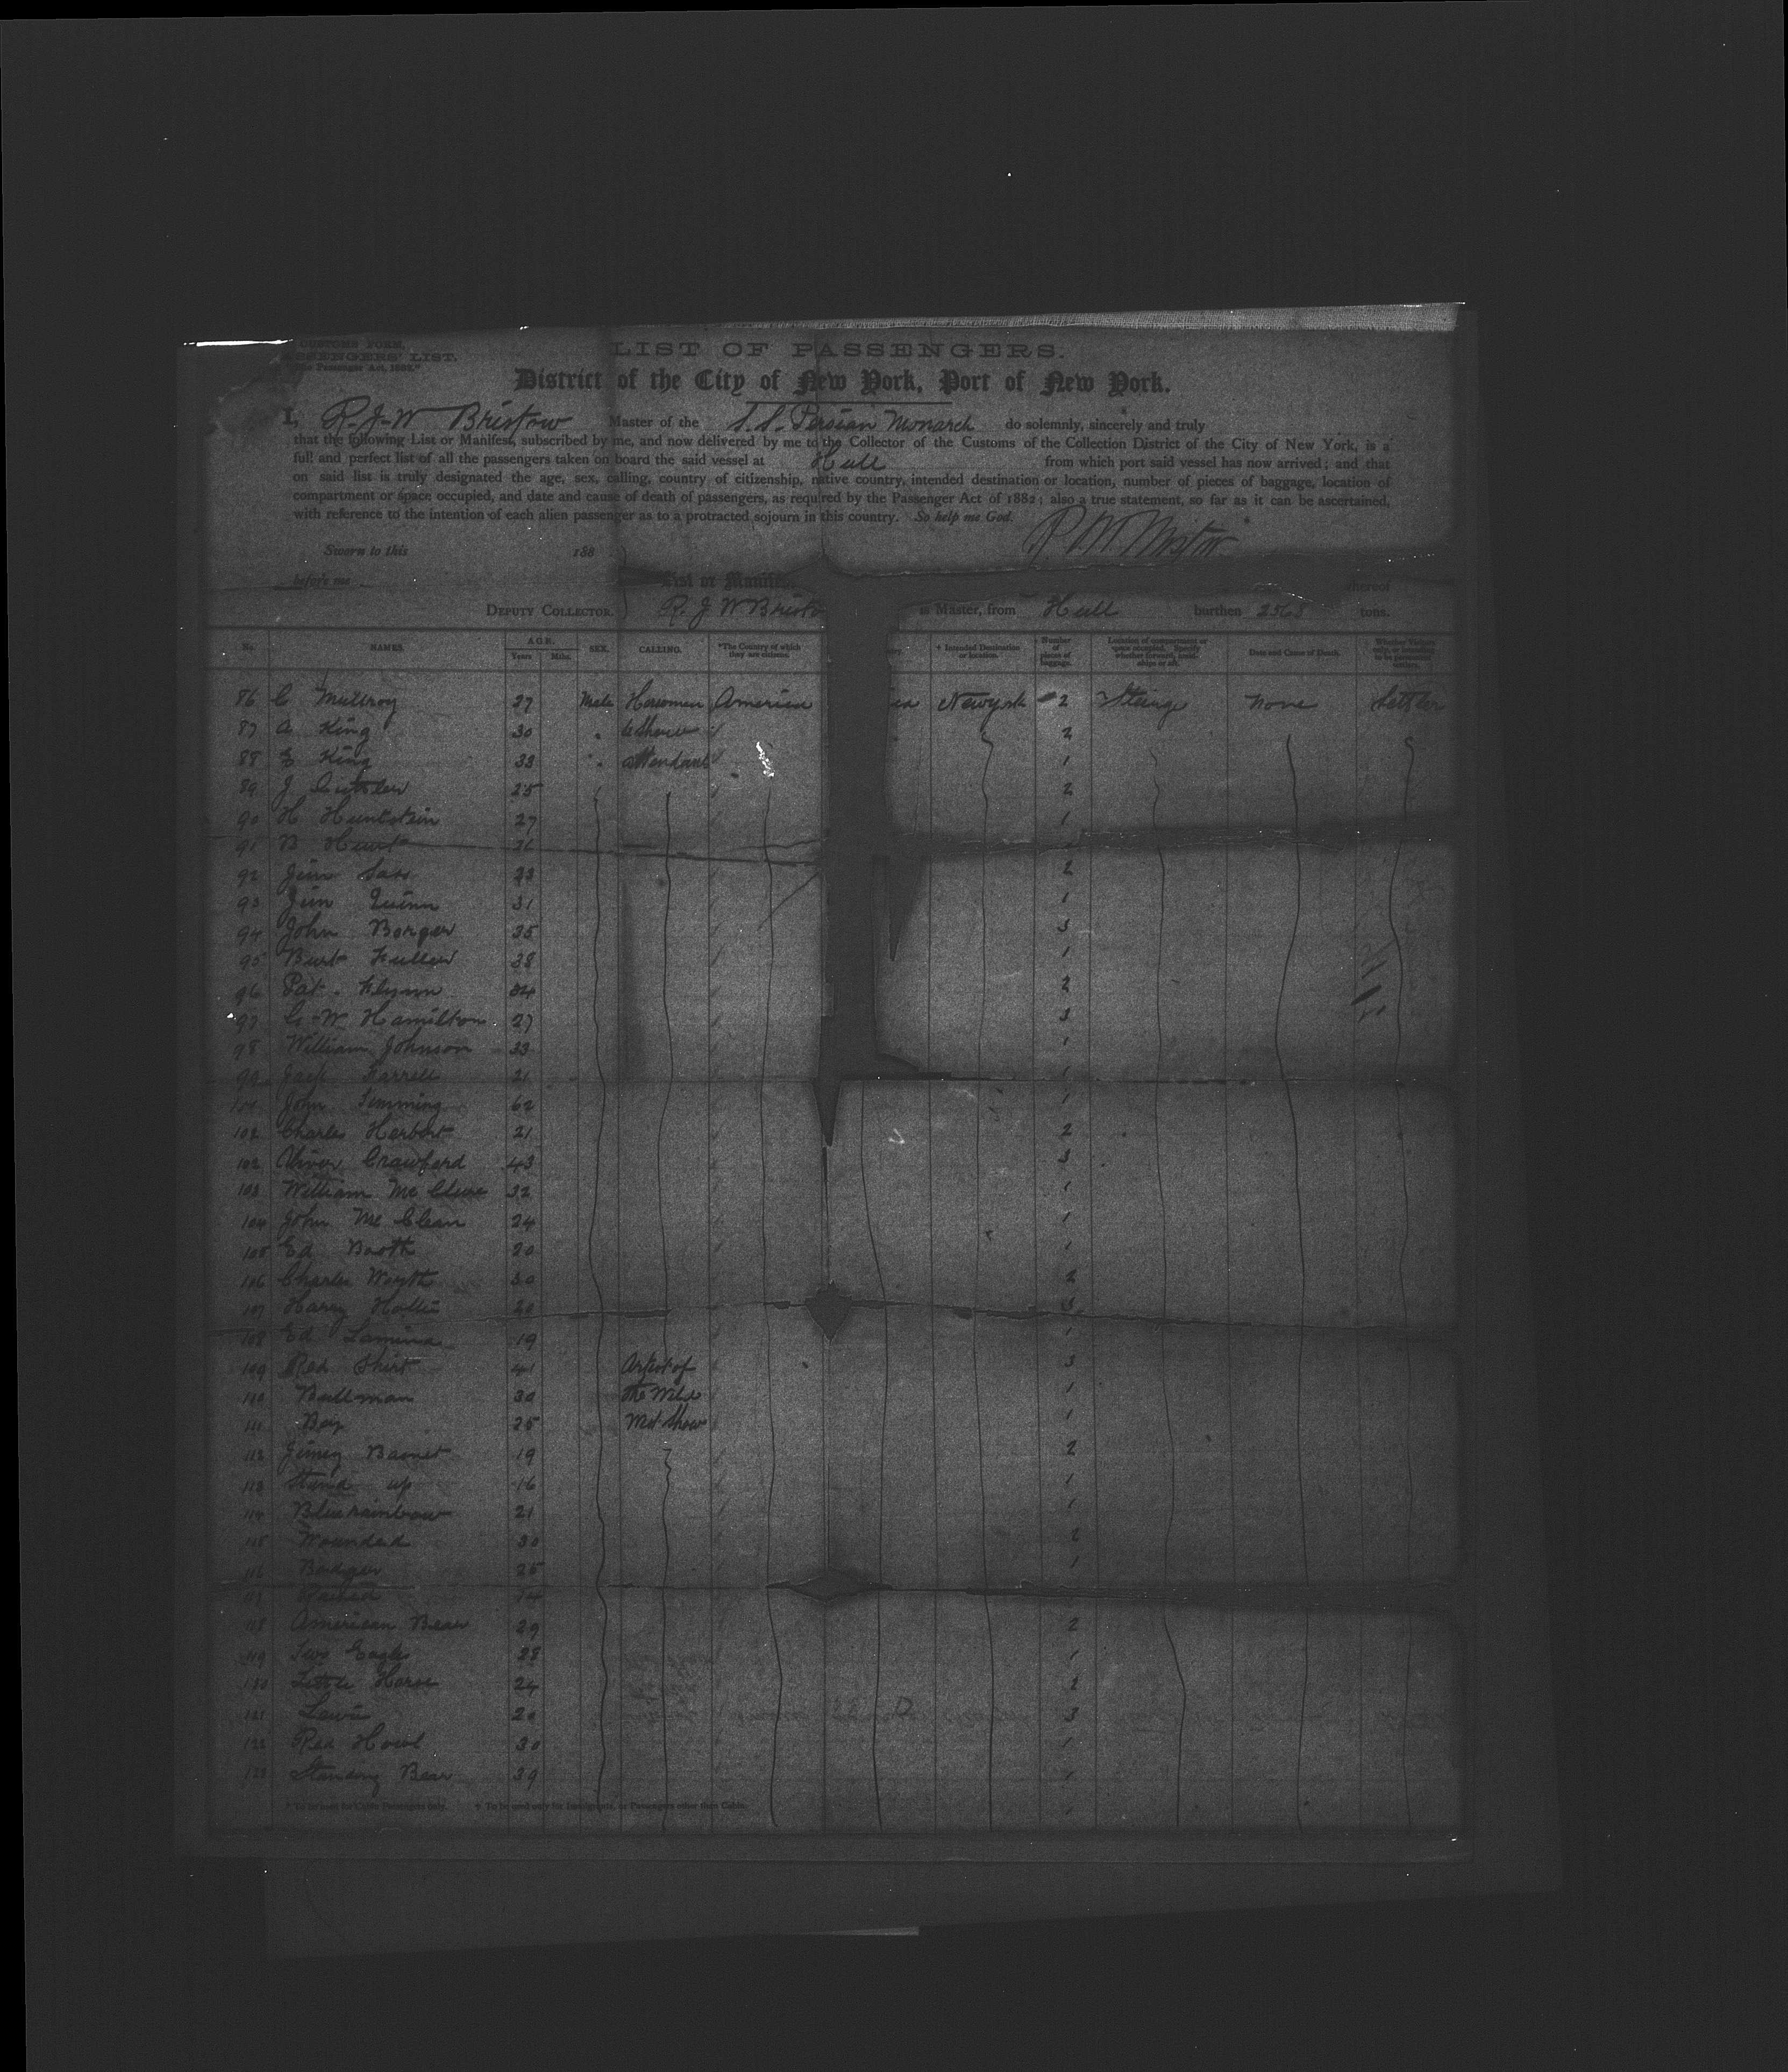 CUSTOMS FORM.
PASSENGERS' LIST.
"The Passenger Act, 1882."
LIST OF PASSENGERS.
District of the City of New York, Port of New York.
I, R. J. W Bristow Master of the S.S. Persian Monarch do solemnly, sincerely and truly
that the following List or Manifest, subscribed by me, and now delivered by me to the Collector of the Customs of the Collection District of the City of New York, is a
full and perfect list of all the passengers taken on board the said vessel at Hull from which port said vessel has now arrived; and that
on said list is truly designated the age, sex, calling, country of citizenship, native country, intended destination or location, number of pieces of baggage, location of
compartment or space occupied, and date and cause of death of passengers, as required by the Passenger Act of 1882; also a true statement, so far as it can be ascertained,
with reference to the intention of each alien passenger as to a protracted sojourn in this country. So help me God.
Sworn to this 188
before me
List or Manifest hereof
DEPUTY COLLECTOR. R. J W Bristo is Master, from Hull burthen 2568 tons.
No. NAMES. AGE. Years Mths. SEX. CALLING. *The Country of which they are citizens. + Intended Destination or location. Number of pieces of baggage. Location of compartment or space occupied. Specify whether forward, amidships or aft. Date and Cause of Death.
86 C Mullroy 27 Male Horsemen America Newyork 2 Steerage None Settler
87 A King 30 & Show 2
88 E King 33 attendant 1
89 J 25 2
90 H 27 1
91 B Hunt
92 Jim 23 2
93 Jim Quinn 31 1
94 John Borger 35 3
95 Burt Fuller 38 1
96 Pat. Flynn 34 2
97 G-W Hamilton 27 3
98 William Johnson 33 1
99 Jack Farrell 21 1
John Simming 62 1
Charles Herbert 21 2
102 Oliver Crawford 43 3
103 William Mc Clure 32 1
104 John Mc Clean 24 1
105 Ed Booth 20 1
106 Charles Worth 30 2
107 Harry 20 3
108 Ed 19 1
109 Red Shirt 41 Artist of 3
110 Bullman 30 The Wild 1
111 Boy 25 West Show 1
112 Jimey 19 2
113 Stand up 16 1
114 Bluerainbow 21 1
115 Wounded 30 2
116 Badger 25 1
117
118 American Bear 29 2
119 Two Eagles 28 1
120 Little Horse 24 2
121 20 3
122 Red Howl 30 1
123 Standing Bear 39 1
* To be used for Cabin Passengers only. + To be used only for Immigrants, or Passengers other than Cabin.